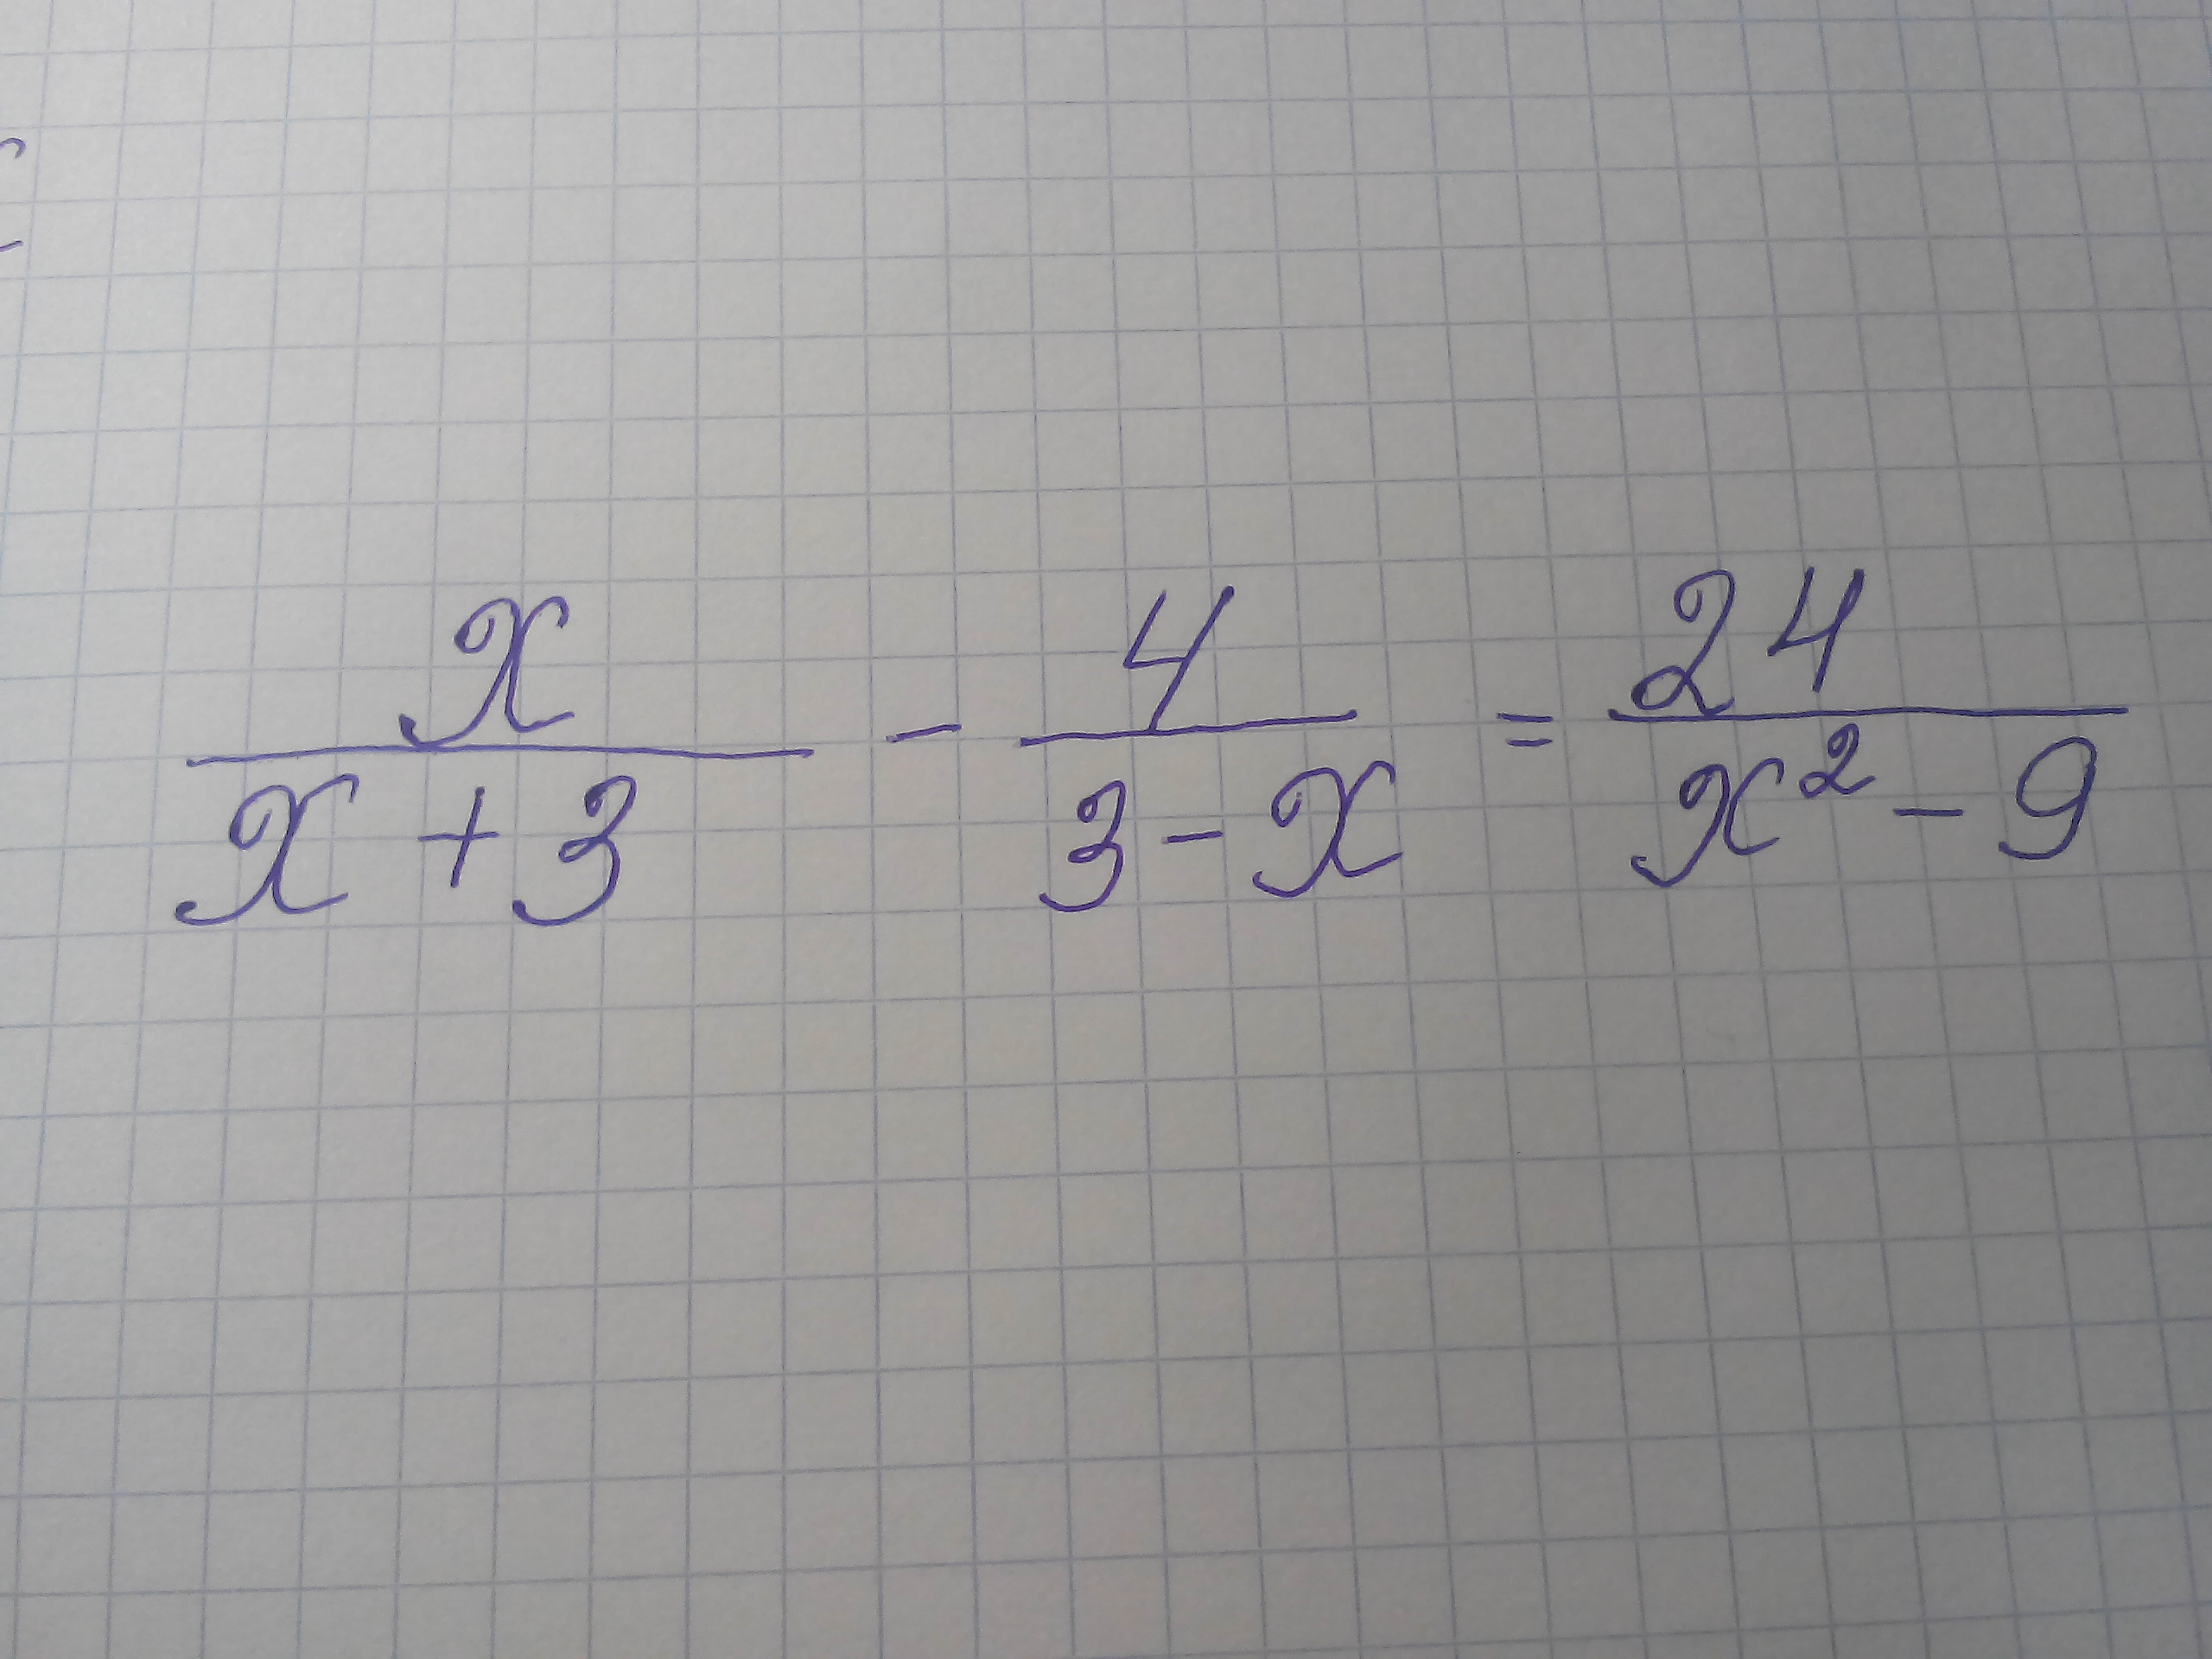 x/(x+3) - 4/(3-x) = 24/(x²-9)